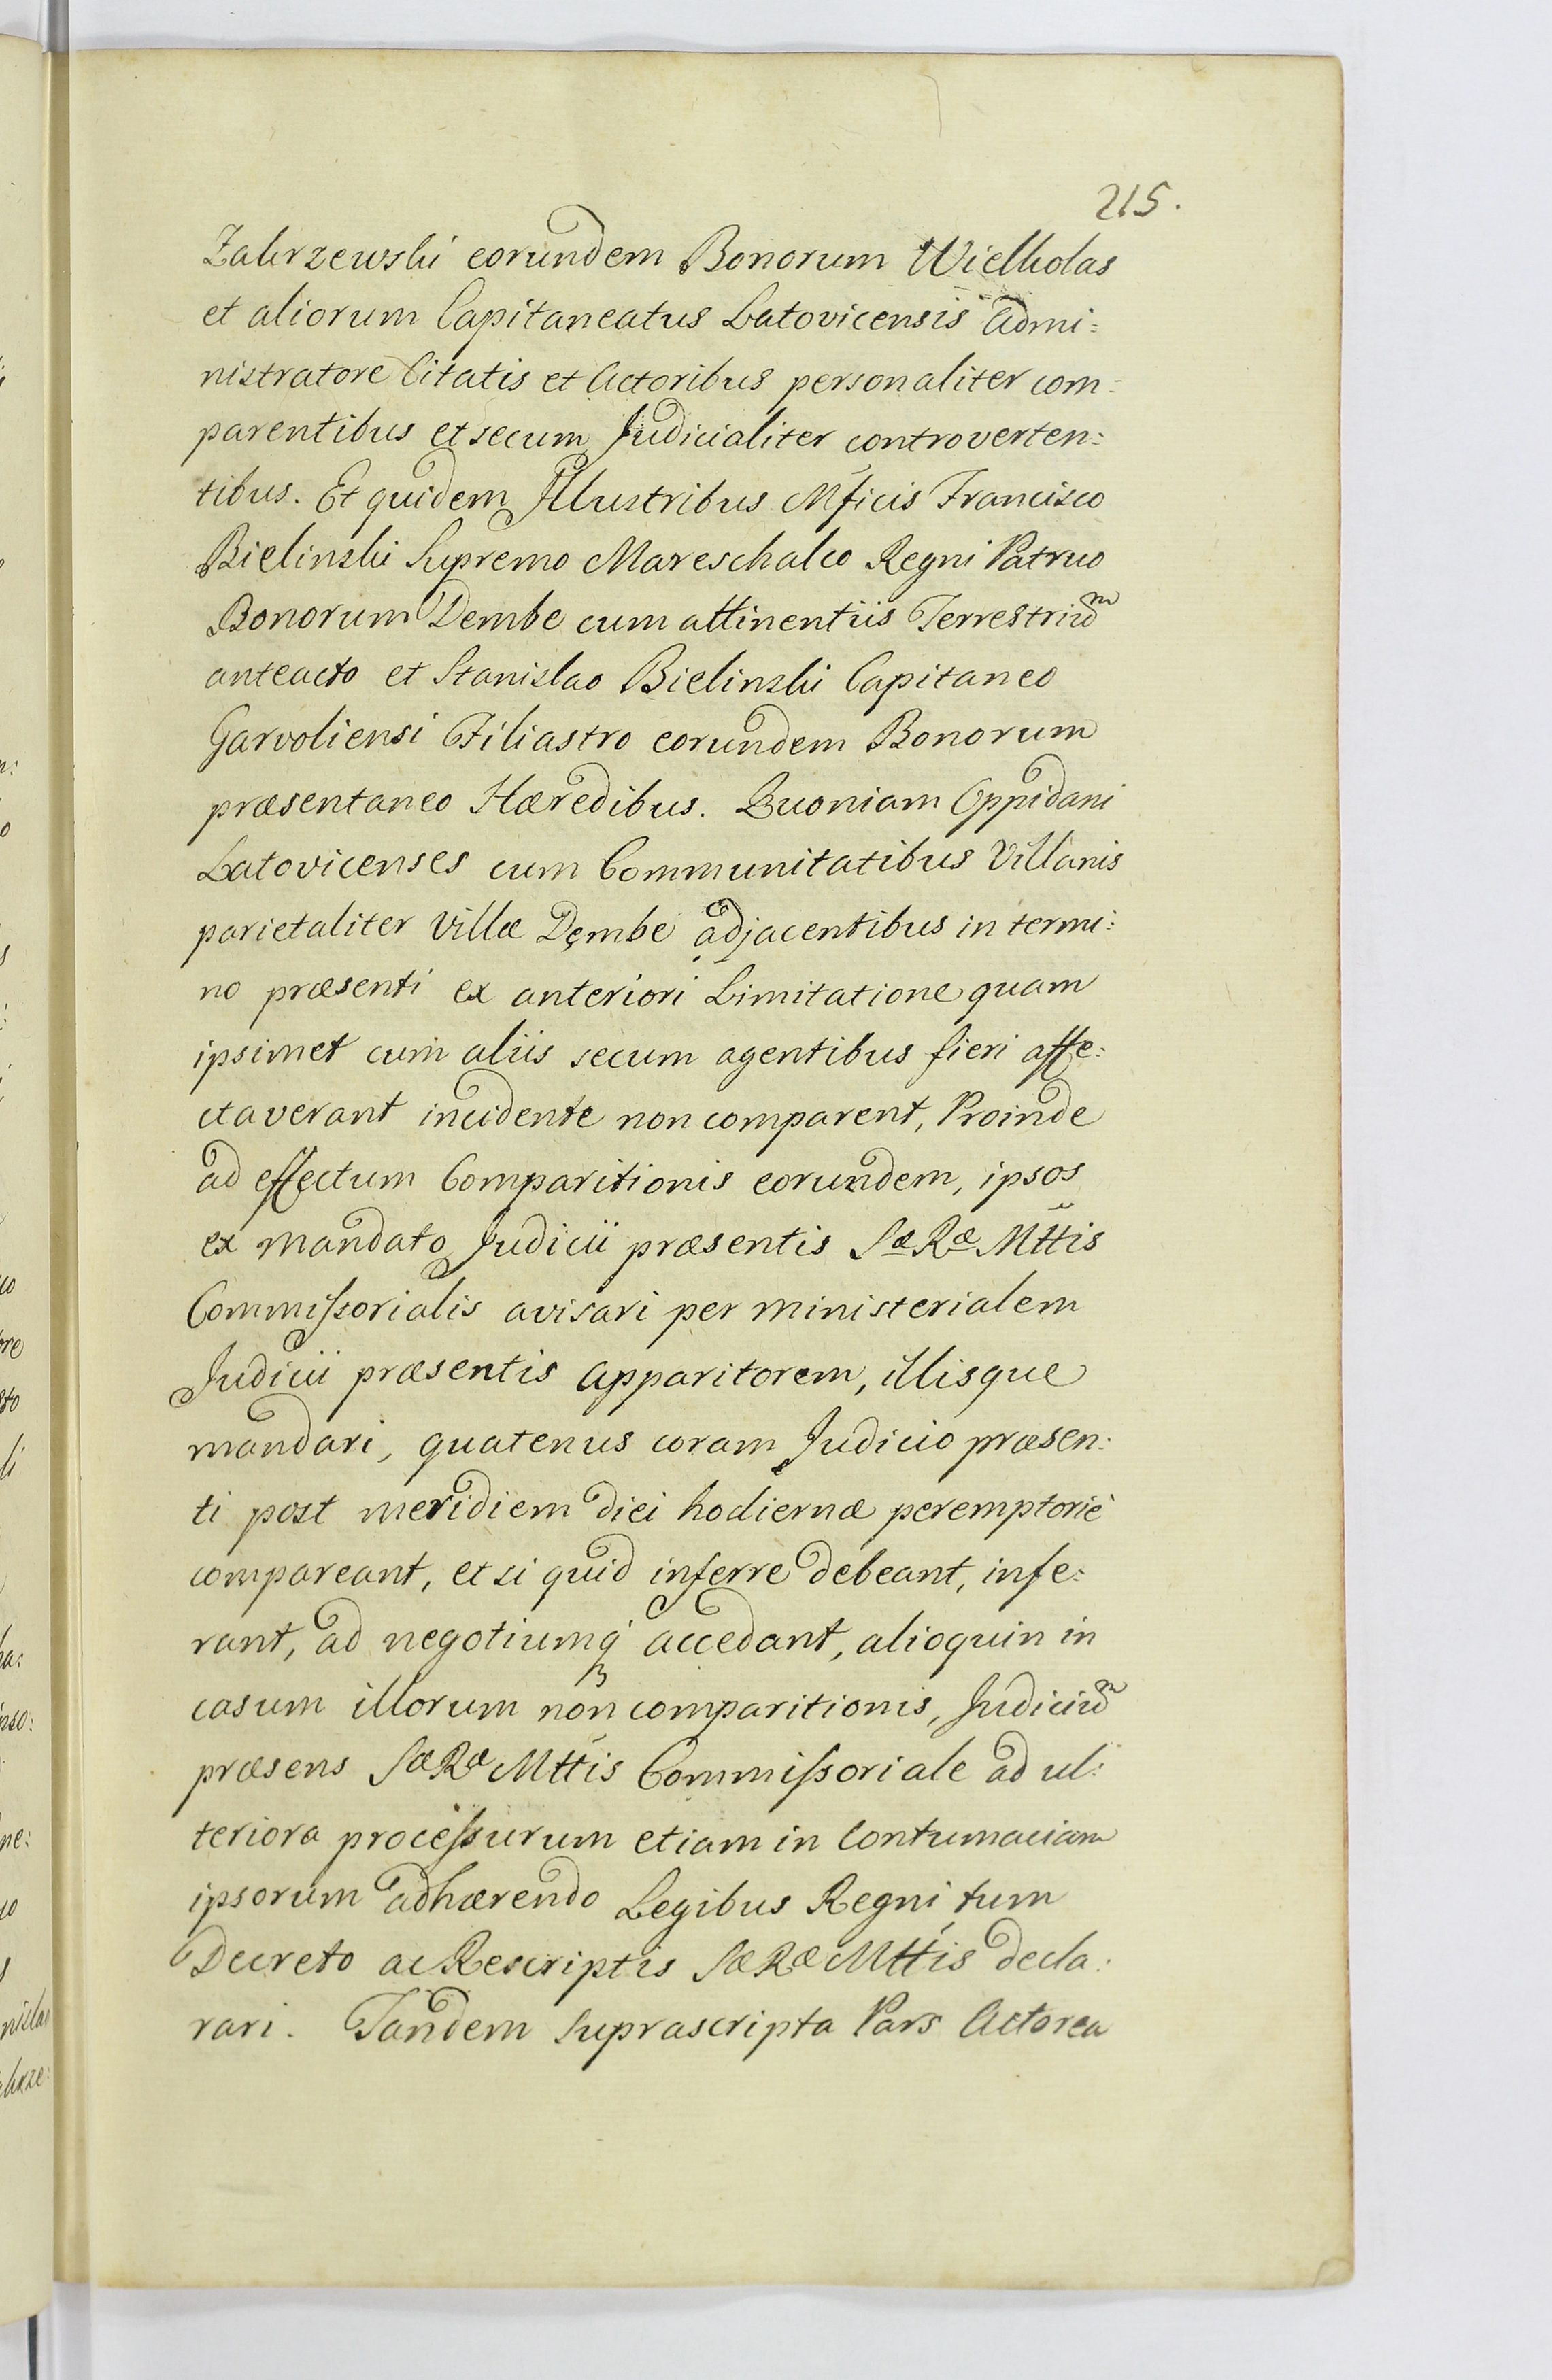 215.
Zakrzewski eorundem Bonorum Wielkolas
et aliorum Capitaneatus Latovicensis Admi:
nistratore Citatis et Actoribus personaliter com:
parentibus et secum Judicialiter controverten:
tibus. Et quidem Illustribus Mficis Francisco
Bielinski Supremo Mareschalco Regni Patruo
Bonorum Dembe cum attinentiis Terrestriu͠m
anteacto et Stanislao Bielinski Capitaneo
Garvoliensi Filiastro eorundem Bonorum
præsentaneo Hæredibus. Quoniam Oppidani
Latovicenses cum Communitatibus Villanis
parietaliter Villæ Dembe adjacentibus in termi:
no præsenti ex anteriori Limitatione quam
ipsimet cum aliis secum agentibus fieri affe:
ctaverant incidente non comparent, Proinde
ad effectum Comparitionis eorundem, ipsos
ex mandato Judicii præsentis Sæ Ræ Mttis
Commiſsorialis avisari per ministerialem
Judicii præsentis Apparitorem, illisque
mandari, quatenus coram Judicio præsen:
ti post meridiem diei hodiernæ peremptorie
compareant, et si quid inferre debeant, infe:
rant, ad negotiumq́ʒ accedant, alioquin in
casum illorum non comparitionis, Judiciu͠m
præsens Sæ Ræ Mttis Commiſsoriale ad ul:
teriora proceſsurum etiam in Contumaciam
ipsorum adhærendo Legibus Regni tum
Decreto ac Rescriptis Sæ Ræ Mttis decla:
rari. Tandem Suprascripta Pars Actorea